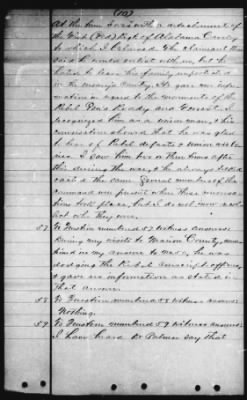 (10)
At the time I was with a detachment of
the First (1st) Regt of Alabama Cavalry
to which I belonged. The claimant then
said he would enlist with us, but he
hated to leave his family unprotected
in the enemy's country. He gave me infor-
mation in regard to the movements of the
Rebel Gen's Roddy and Forrest. I
recognized him as a union man, & his
conversation showed that he was glad
to hear of Rebel defeats & union victo-
ries. I saw him two or three times after
this during the war, & he always talked
the same. Several members of the
command were present when these conversa-
tions took place, but I do not now
who they were.
57 To Question numbered 57 witness answers:
During my visits to Marion County, 
in my answer to he was
dodging the Rebel conscript officers,
& gave me information as stated in
that answer.
58 To Question numbered 58 witness answers:
Nothing.
59 To Question numbered 59 witness answers:
I have heard Dr Palmer say that